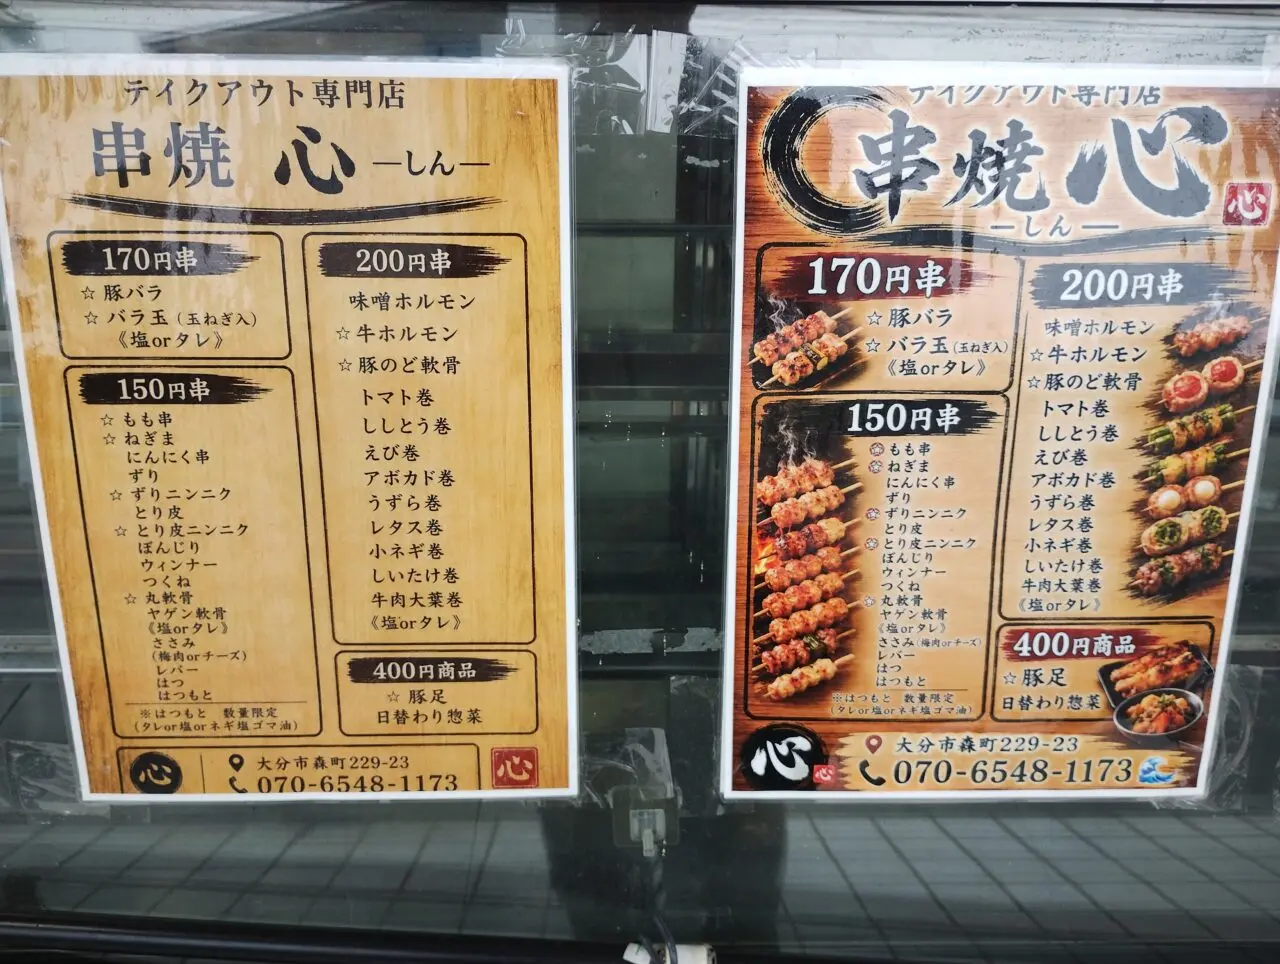 テイクアウト専門店
串焼 心 ―しん―
170円串
☆ 豚バラ
☆ バラ玉（玉ねぎ入）
《塩orタレ》
150円串
☆ もも串
☆ ねぎま
にんにく串
ずり
☆ ずりニンニク
とり皮
☆ とり皮ニンニク
ぼんじり
ウィンナー
つくね
☆ 丸軟骨
ヤゲン軟骨
《塩orタレ》
ささみ
(梅肉orチーズ)
レバー
はつ
はつもと
※はつもと 数量限定
(タレor塩orネギ塩ゴマ油)
200円串
味噌ホルモン
☆ 牛ホルモン
☆ 豚のど軟骨
トマト巻
ししとう巻
えび巻
アボカド巻
うずら巻
レタス巻
小ネギ巻
しいたけ巻
牛肉大葉巻
《塩orタレ》
400円商品
☆ 豚足
日替わり惣菜
心
大分市森町229-23
070-6548-1173
心
テイクアウト専門店
串焼 心
―しん―
心
170円串
☆ 豚バラ
☆ バラ玉（玉ねぎ入）
《塩orタレ》
150円串
もも串
ねぎま
にんにく串
ずり
ずりニンニク
とり皮
とり皮ニンニク
ぼんじり
ウィンナー
つくね
☆ 丸軟骨
ヤゲン軟骨
《塩orタレ》
ささみ(梅肉orチーズ)
レバー
はつ
はつもと
※はつもと 数量限定
(タレor塩orネギ塩ゴマ油)
200円串
味噌ホルモン
☆牛ホルモン
☆豚のど軟骨
トマト巻
ししとう巻
えび巻
アボカド巻
うずら巻
レタス巻
小ネギ巻
しいたけ巻
牛肉大葉巻
《塩orタレ》
400円商品
☆ 豚足
日替わり惣菜
心
心
大分市森町229-23
070-6548-1173